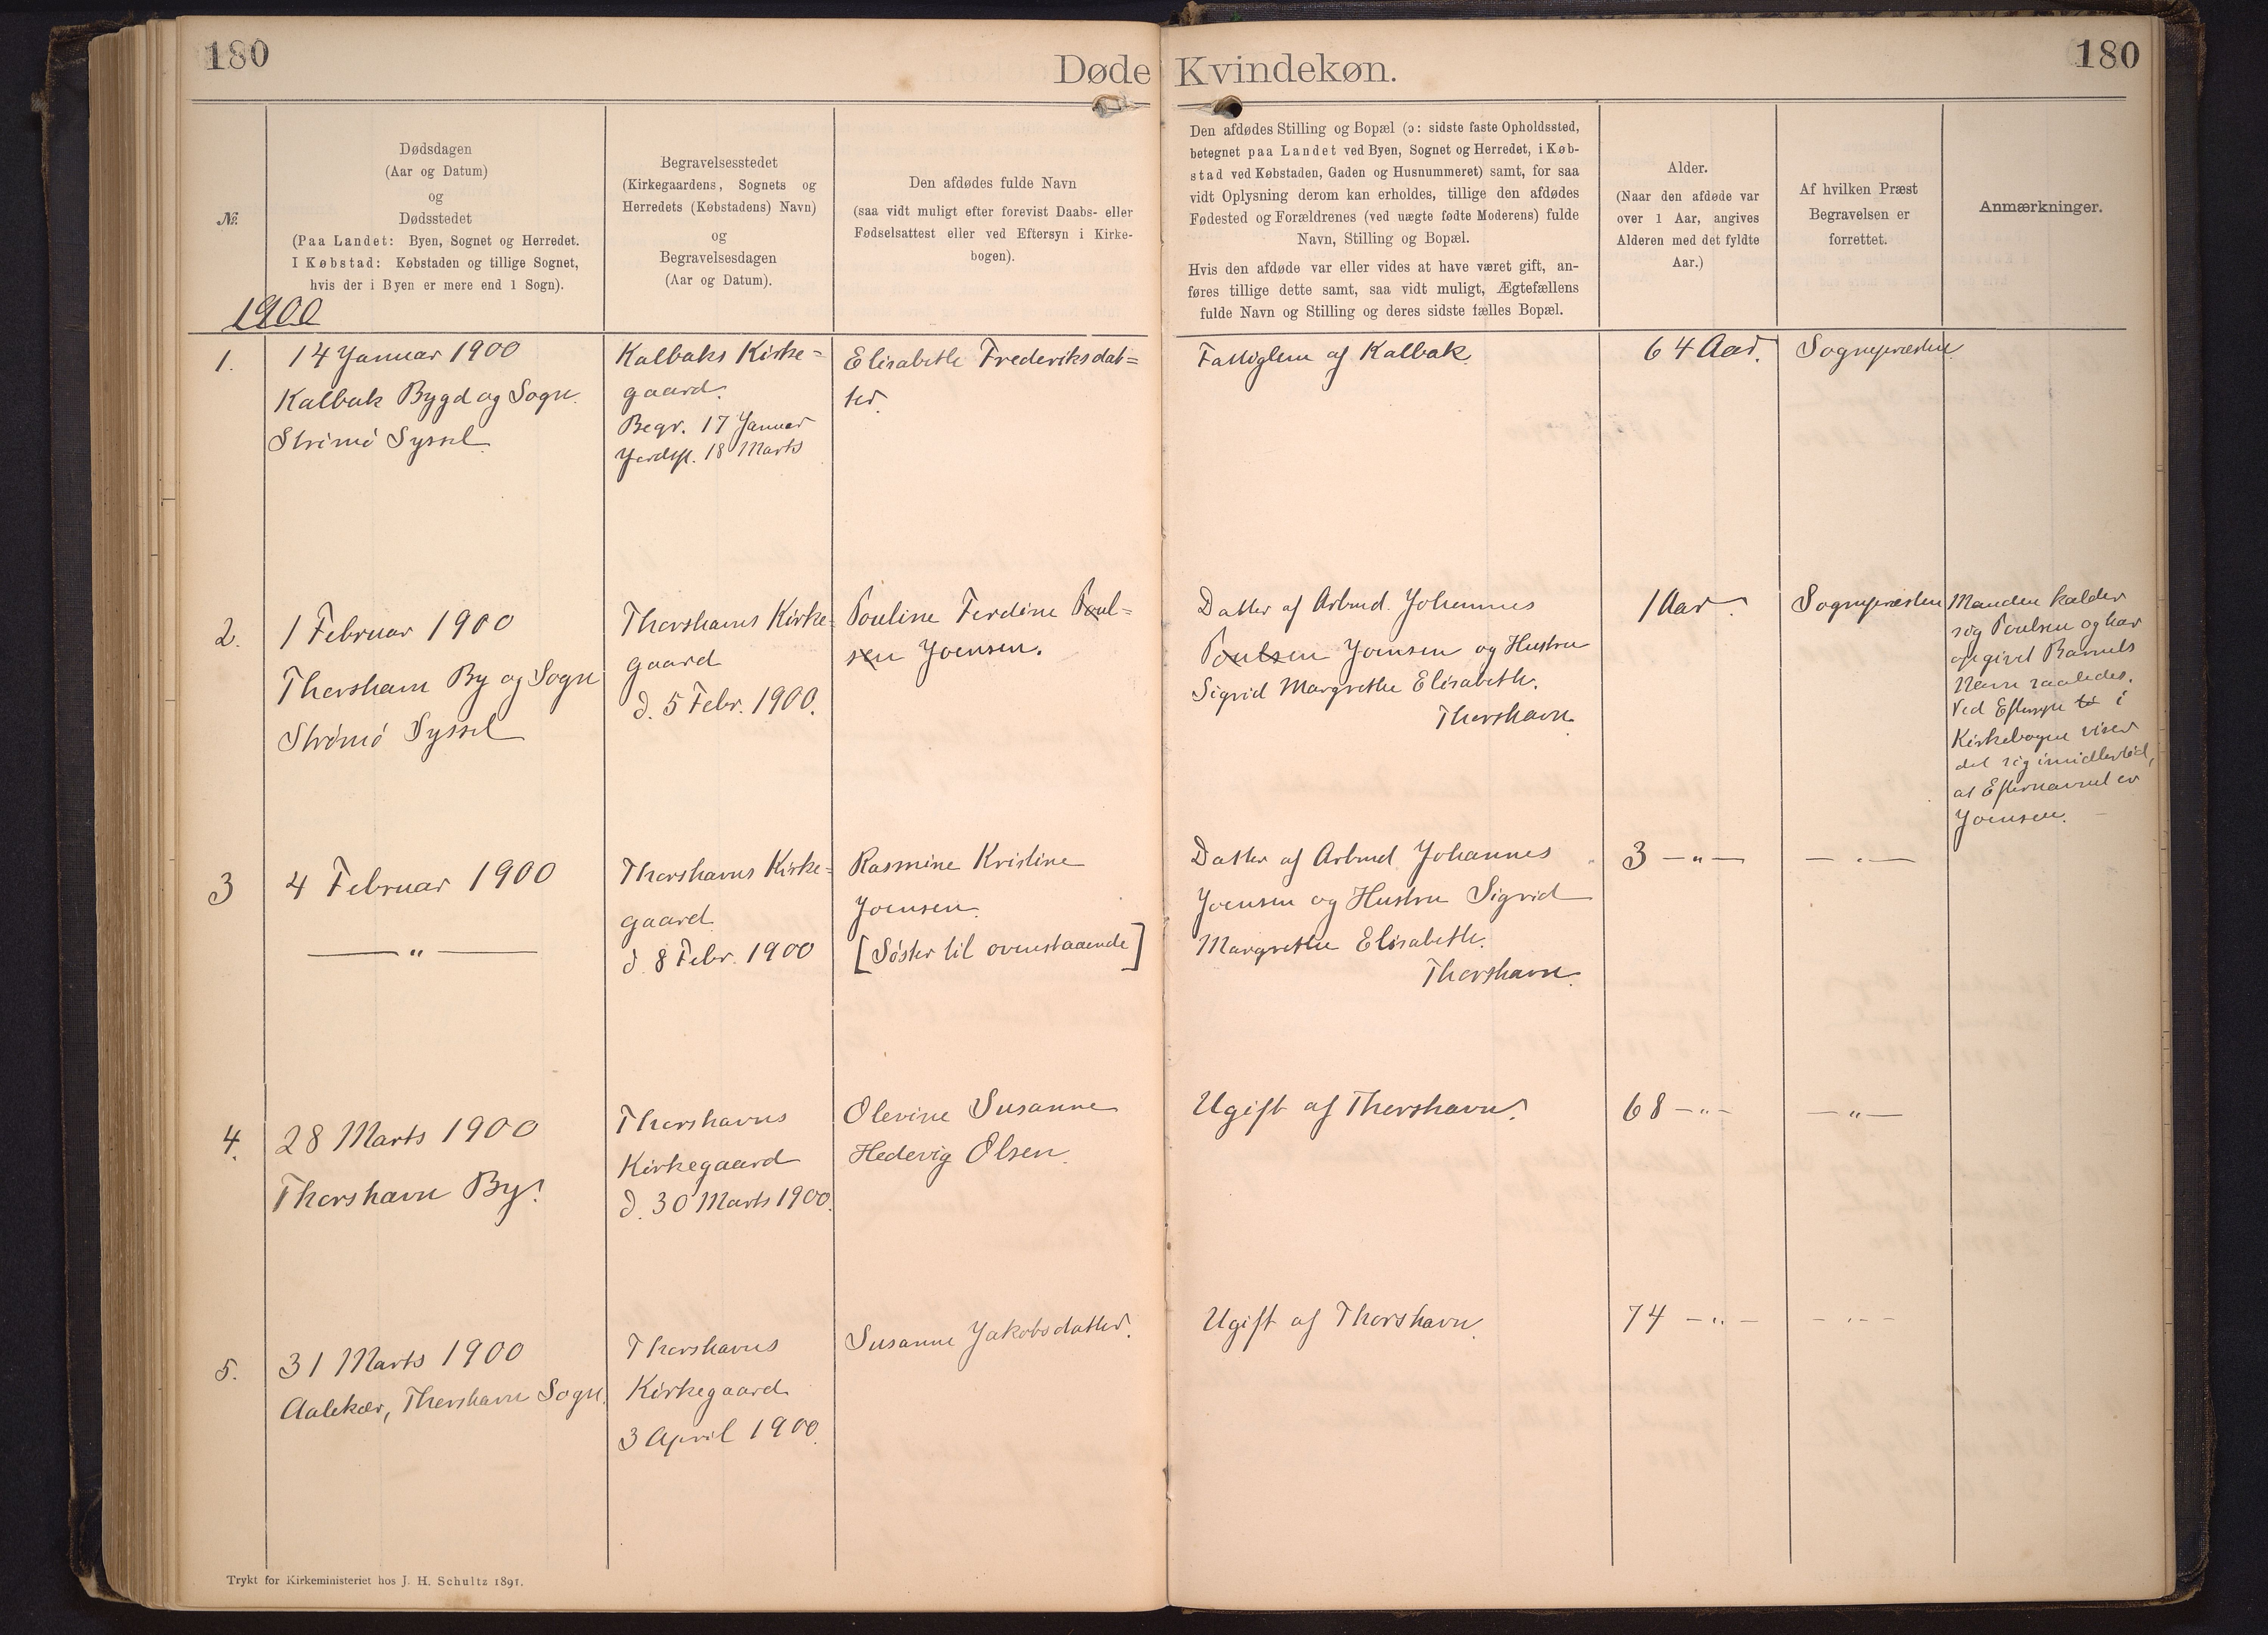 180
Døde Kvindekøn.
180
№.
Dødsdagen
(Aar og Datum)
og
Dødsstedet
(Paa Landet: Byen, Sognet og Herredet.
I Købstad: Købstaden og tillige Sognet,
hvis der i Byen er mere end 1 Sogn).
Begravelsesstedet
(Kirkegaardens, Sognets og
Herredets (Købstadens) Navn)
og
Begravelsesdagen
(Aar og Datum).
Den afdødes fulde Navn
(saa vidt muligt efter forevist Daabs- eller
Fødselsattest eller ved Eftersyn i Kirke-
bogen).
Den afdødes Stilling og Bopæl (ɔ: sidste faste Opholdssted,
betegnet paa Landet ved Byen, Sognet og Herredet, i Køb-
stad ved Købstaden, Gaden og Husnummeret) samt, for saa
vidt Oplysning derom kan erholdes, tillige den afdødes
Fødested og Forældrenes (ved uægte fødte Moderens) fulde
Navn, Stilling og Bopæl.
Hvis den afdøde var eller vides at have været gift, an-
føres tillige dette samt, saa vidt muligt, Ægtefællens
fulde Navn og Stilling og deres sidste fælles Bopæl.
Alder.
(Naar den afdøde var
over 1 Aar, angives
Alderen med det fyldte
Aar.)
Af hvilken Præst
Begravelsen er
forrettet.
Anmærkninger.
1900
1.
14 Januar 1900
Kalbak Bygd og Sogn.
Strømø Syssel
Kalbaks Kirke=
gaard.
Begr. 17 Januar
Jordsp. 18 Marts
Elisabeth Frederiksdat=
ter.
Fattiglem af Kalbak
64 Aar.
Sognepræsten
2.
1 Februar 1900
Thorshavn By og Sogn
Strømø Syssel
Thorshavns Kirke=
gaard
d. 5 Febr. 1900.
Pouline Ferdine Poul=
sen Joensen.
Datter af Arbmd. Johannes
Poulsen Joensen og Hustru
Sigrid Margrethe Elisabeth.
Thorshavn.
1 Aar.
Sognepræsten
Manden kalder
sig Poulsen og har
opgivet Barnets
Navn saaledes.
Ved Eftersyn i
Kirkebogen viser
det sig imidlertid,
at Efternavnet er
Joensen.
3
4 Februar 1900
— " —
Thorshavns Kirke=
gaard
d. 8 Febr. 1900
Rasmine Kristine
Joensen.
[Søster til ovenstaaende]
Datter af Arbmd Johannes
Joensen og Hustru Sigrid
Margrethe Elisabeth.
Thorshavn.
3 — " —
— " —
4.
28 Marts 1900
Thorshavn By.
Thorshavns
Kirkegaard
d. 30 Marts 1900.
Olevine Susanne
Hedevig Olsen.
Ugift af Thorshavn.
68 — " —
— " —
5.
31 Marts 1900
Aalekær, Thorshavn Sogn.
Thorshavns
Kirkegaard
3 April 1900.
Susanne Jakobsdatter.
Ugift af Thorshavn.
74 — " —
— " —
Trykt for Kirkeministeriet hos J. H. Schultz 1891.